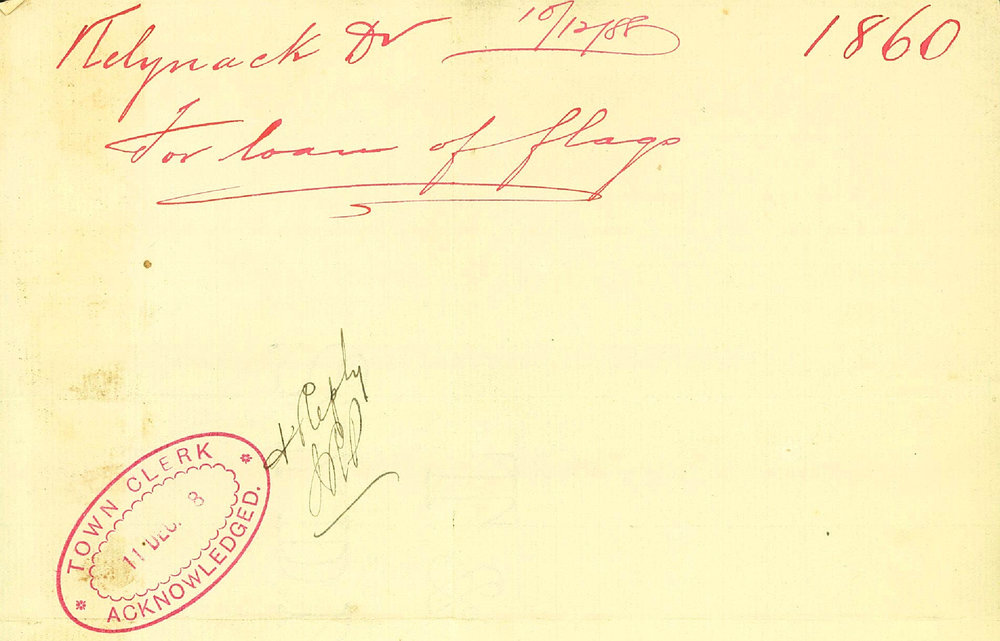 Relynack Dr 10/12/88 1860
For loan of flags
& Reply
TOWN CLERK
11 DEC. 8
ACKNOWLEDGED.